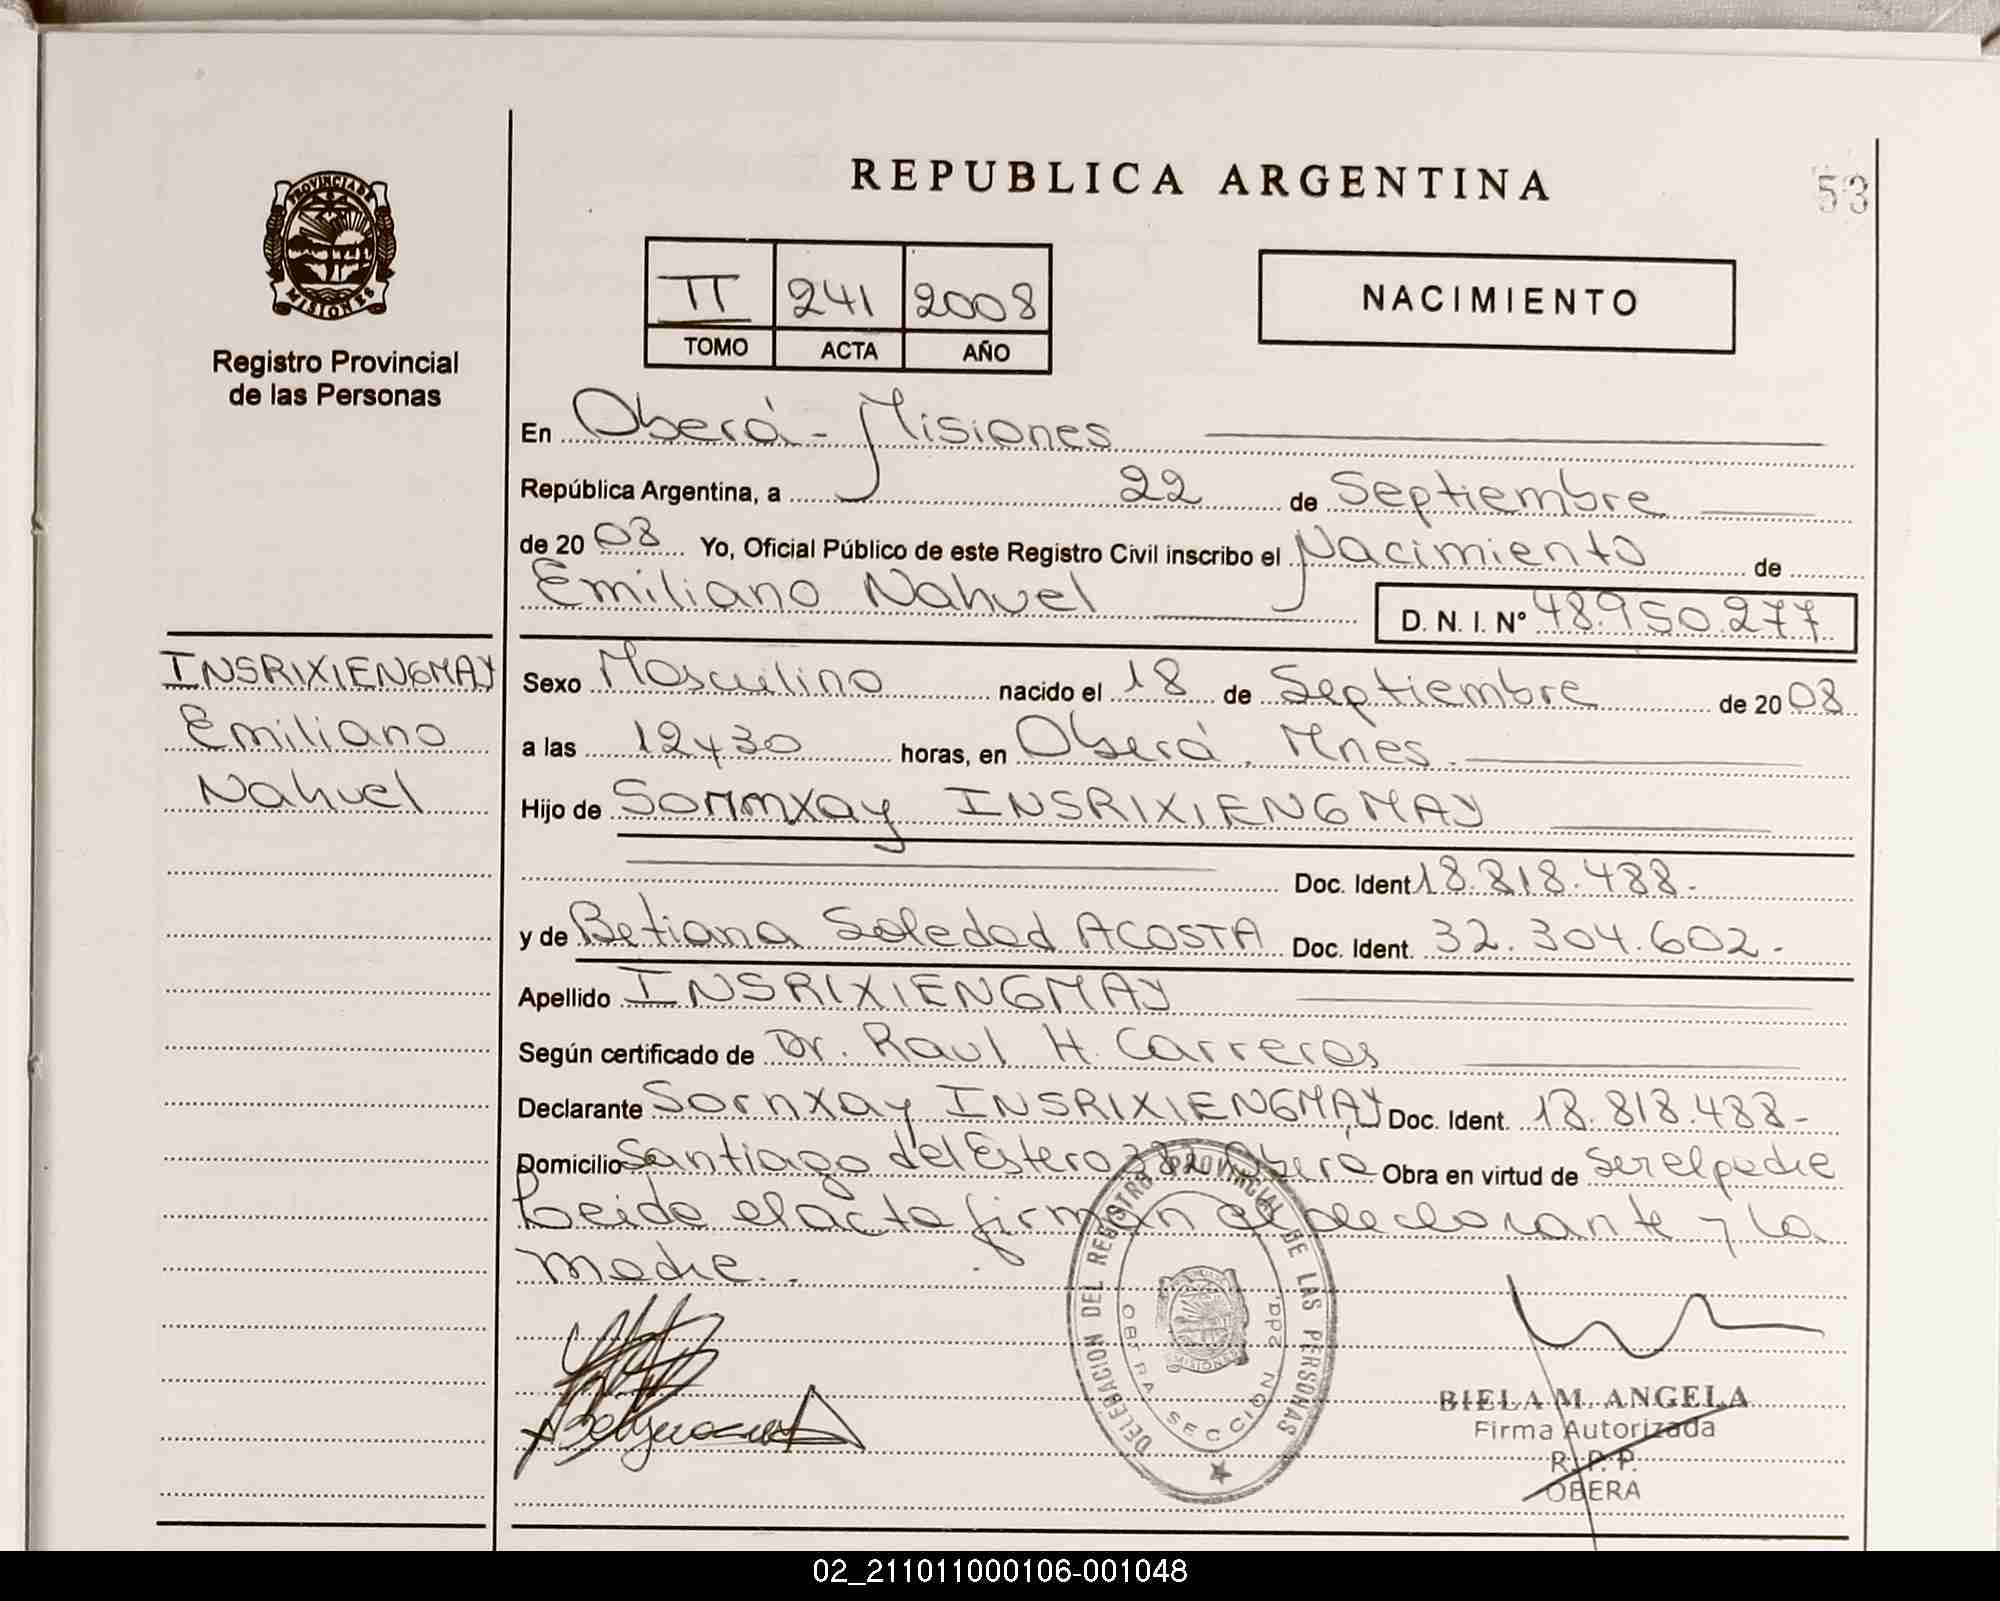 REPUBLICA ARGENTINA
53
PROVINCIA DE
MISIONES
Registro Provincial
de las Personas
II 241 2008
TOMO ACTA AÑO
NACIMIENTO
En Oberá - Misiones
República Argentina, a 22 de Septiembre
de 20 08 Yo, Oficial Público de este Registro Civil inscribo el Nacimiento de
Emiliano Nahuel
D. N. I. Nº 48.950.277
INSRIXIENGMAY
Emiliano
Nahuel
Sexo Masculino nacido el 18 de Septiembre de 20 08
a las 12 y 30 horas, en Oberá. Mnes.
Hijo de Sornxay INSRIXIENGMAY
Doc. Ident 18.818.488.-
y de Betiana Soledad ACOSTA Doc. Ident. 32.304.602.-
Apellido INSRIXIENGMAY
Según certificado de Dr. Raul H. Carreras
Declarante Sornxay INSRIXIENGMAY Doc. Ident. 18.818.488-
Domicilio Santiago del Estero Oberá Obra en virtud de ser el padre
Leida el acta firman el declarante y la
madre..
DELEGACION DEL REGISTRO PROVINCIAL DE LAS PERSONAS
OBERA SECCION 2da.
MISIONES
BIELA M. ANGELA
Firma Autorizada
R. P. P.
OBERA
02_211011000106-001048